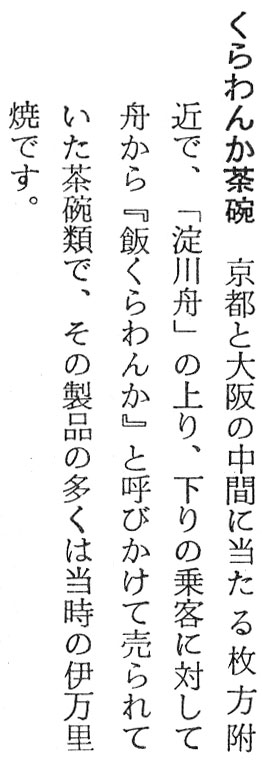 くらわんか茶碗　京都と大阪の中間に当たる枚方附
近で、「淀川舟」の上り、下りの乗客に対して
舟から『飯くらわんか』と呼びかけて売られて
いた茶碗類で、その製品の多くは当時の伊万里
焼です。